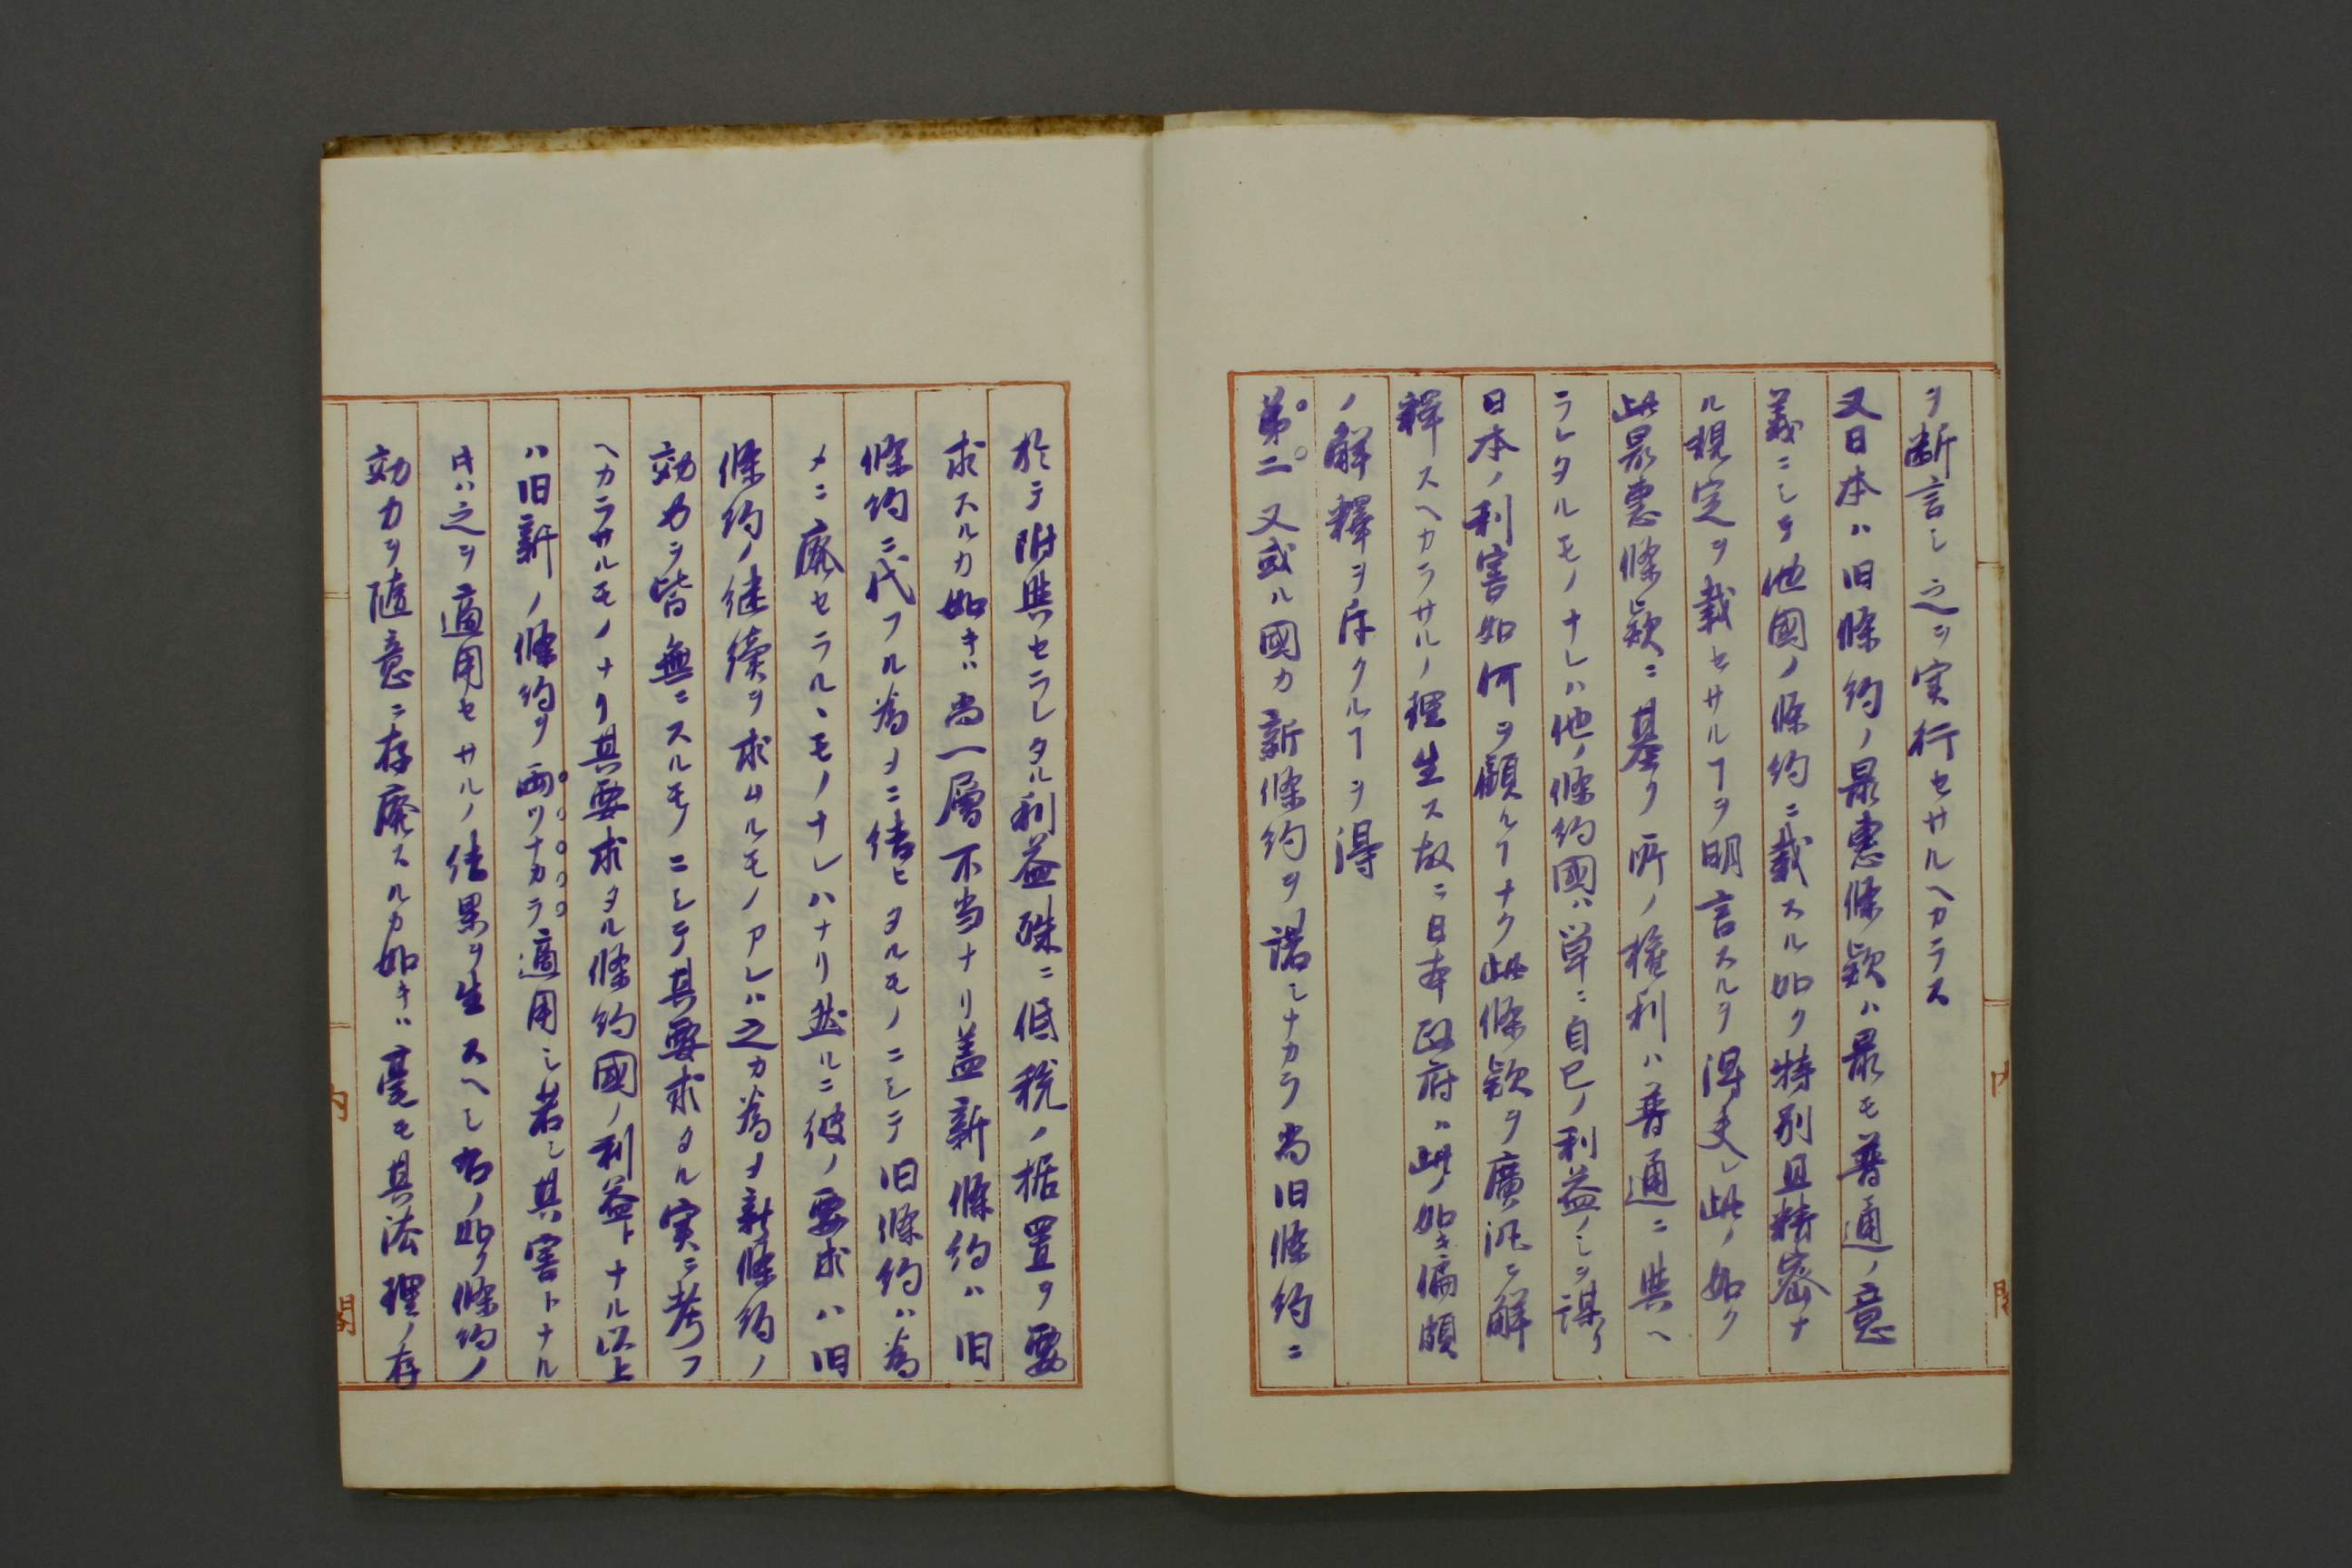 ヲ断言シ之ヲ実行セサルヘカラス
又日本ハ旧條約ノ最惠條款ハ最モ普通ノ意
義ニシテ他國ノ條約ニ載スル如ク特別且精密ナ
ル規定ヲ載セサルヿヲ明言スルヲ得夫レ此ノ如ク
此最惠條款ニ基ク所ノ権利ハ普通ニ與ヘ
ラレタルモノナレハ他ノ條約國ハ単ニ自己ノ利益ノミヲ謀リ
日本ノ利害如何ヲ顧ルヿナク此條款ヲ廣汎ニ解
釋スヘカラサルノ理生ス故ニ日本政府ハ此ノ如キ偏頗
ノ解釋ヲ斥クルヿヲ得
第二 又或ル國カ新條約ヲ諾シナカラ尚旧條約ニ
於テ附與セラレタル利益殊ニ低税ノ据置ヲ要
求スルカ如キハ尚一層不当ナリ蓋新條約ハ旧
條約ニ代フル為メニ結ヒタルモノニシテ旧條約ハ為
メニ廃セラルヽモノナレハナリ然ルニ彼ノ要求ハ旧
條約ノ継續ヲ求ムルモノアレハ之カ為メ新條約ノ
効力ヲ皆無ニスルモノニシテ其要求タル実ニ考フ
ヘカラサルモノナリ其要求タル條約國ノ利益トナル以上
ハ旧新ノ條約ヲ両ツナカラ適用シ若シ其害トナル
時ハ之ヲ適用セサルノ結果ヲ生スヘシ右ノ如ク條約ノ
効力ヲ随意ニ存廃スルカ如キハ毫モ其法理ノ存
内
閣